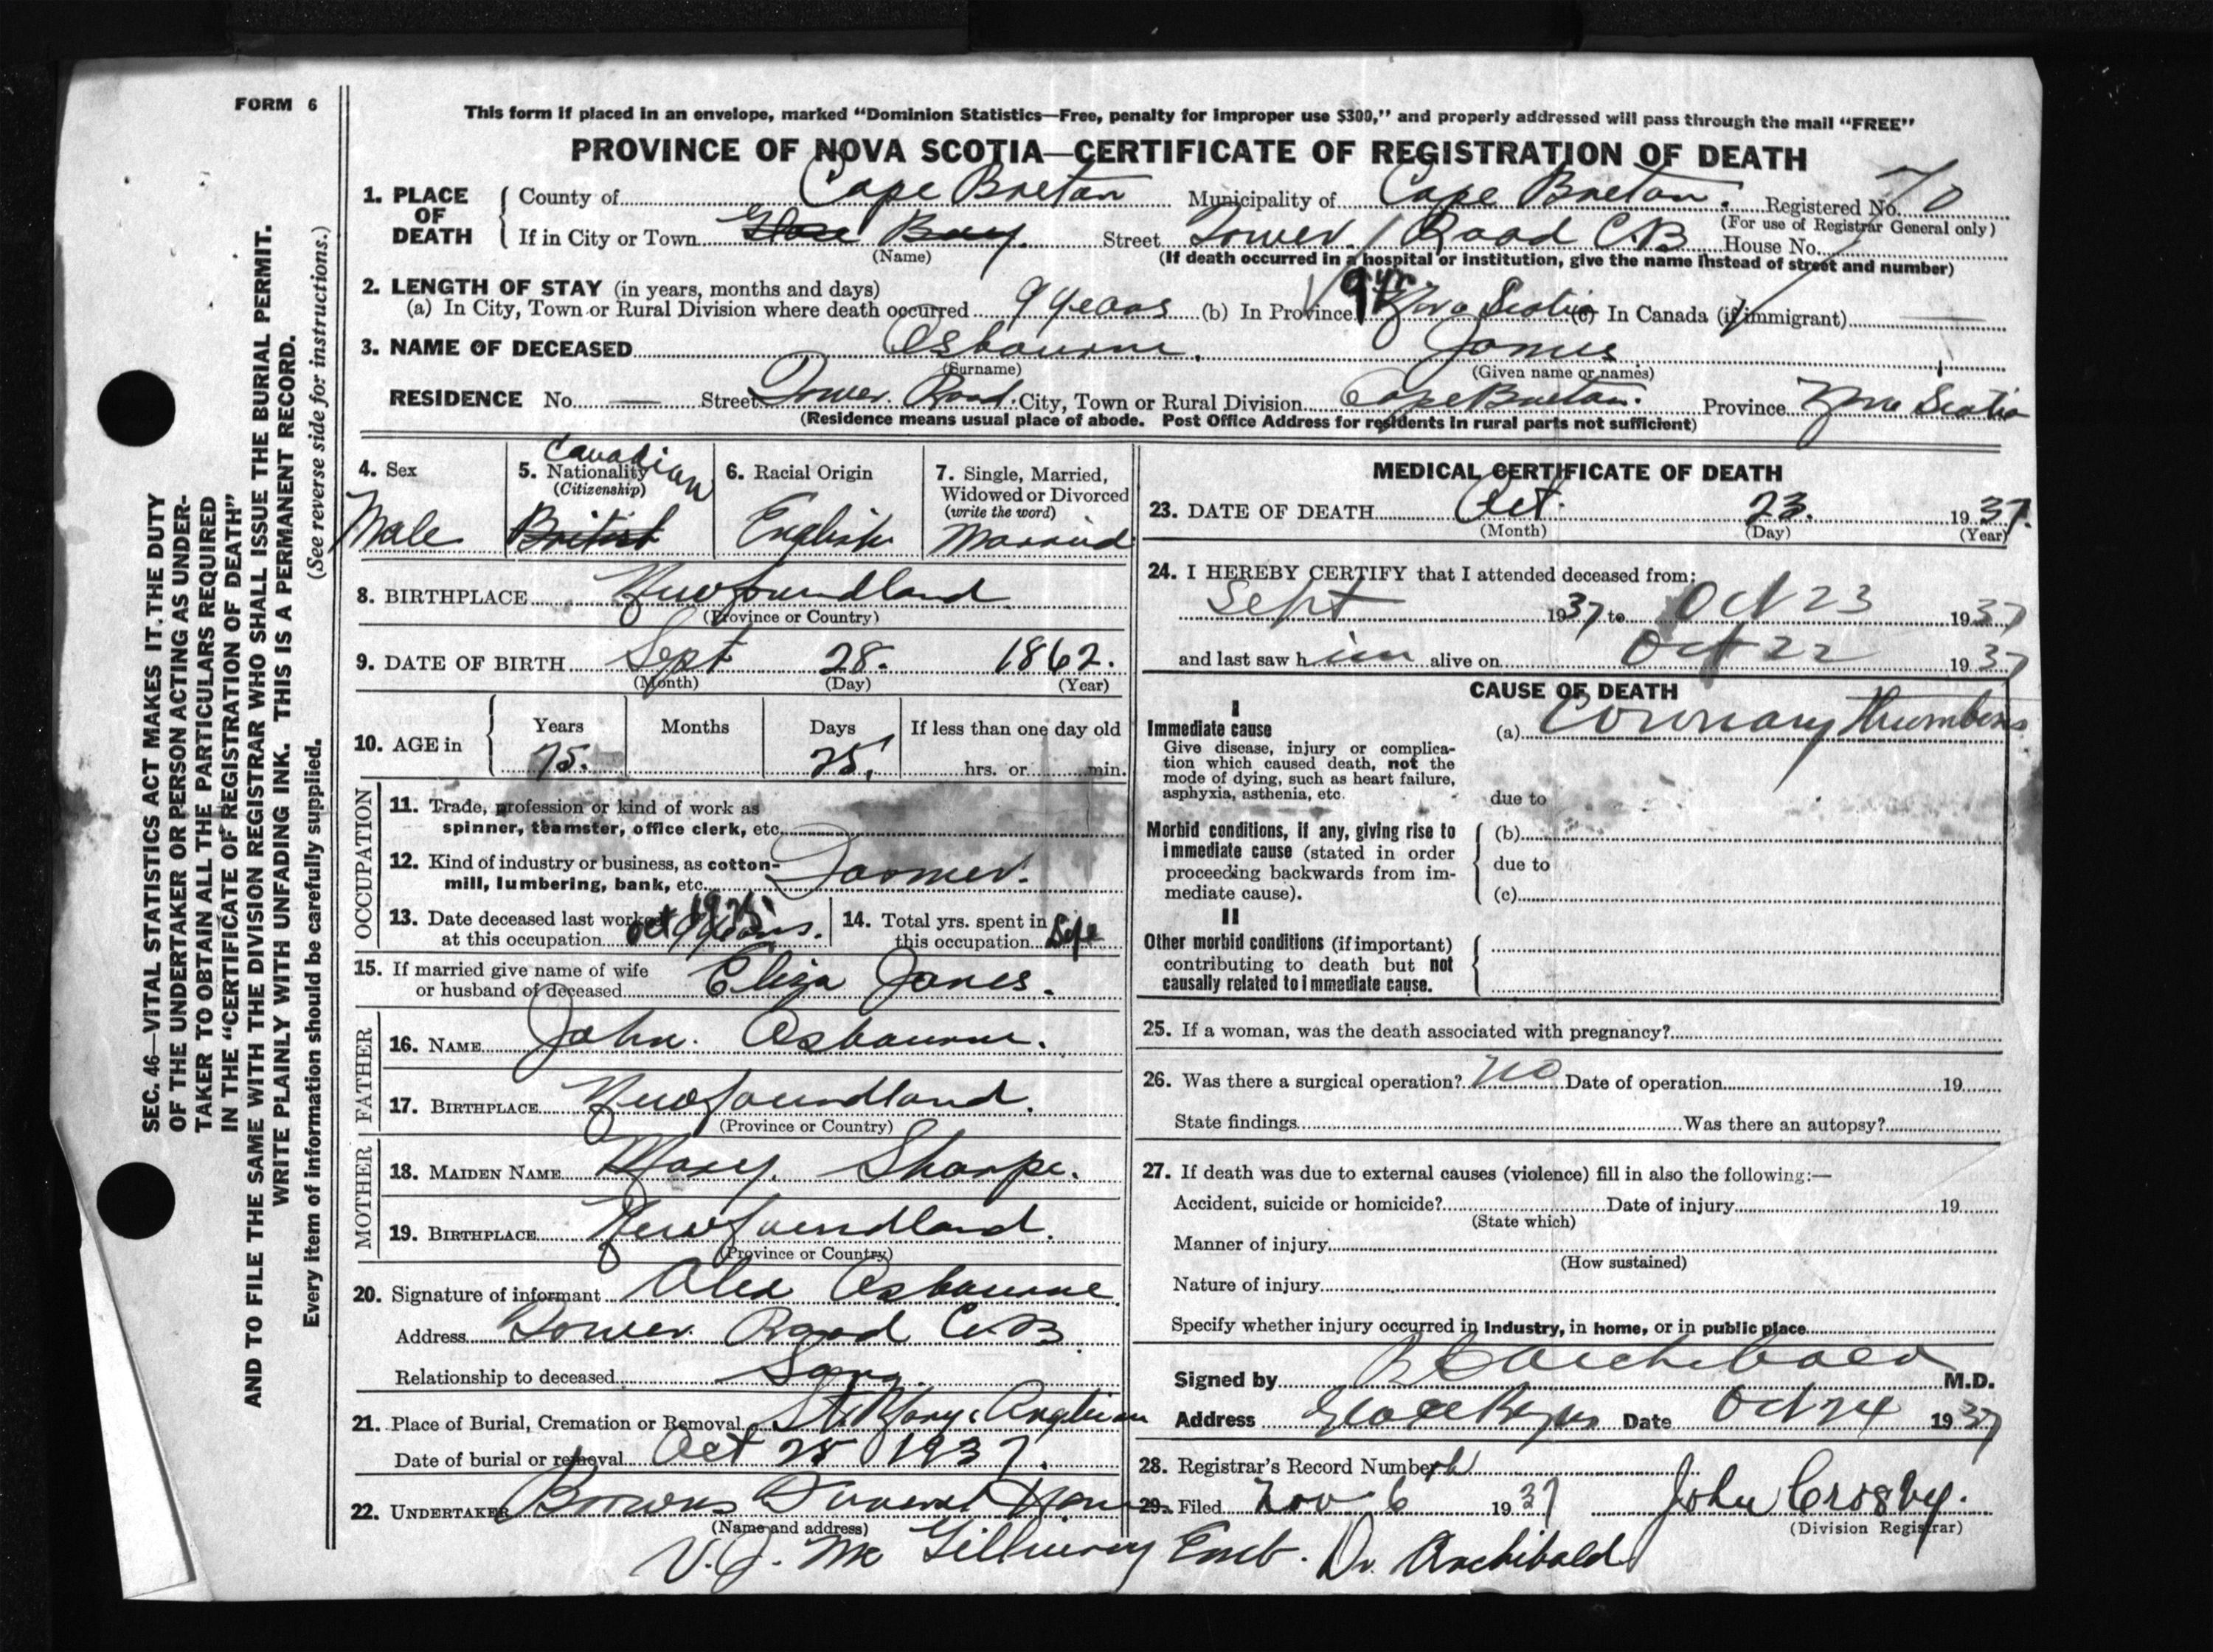 FORM 6
This form if placed in an envelope, marked “Dominion Statistics—Free, penalty for improper use $300,” and properly addressed will pass through the mail “FREE”
PROVINCE OF NOVA SCOTIA—CERTIFICATE OF REGISTRATION OF DEATH
1. PLACE OF DEATH
County of Cape Breton Municipality of Cape Breton. Registered No. 70
(For use of Registrar General only)
If in City or Town Glace Bay. Street Tower Road C.B House No.
(Name)
(If death occurred in a hospital or institution, give the name instead of street and number)
2. LENGTH OF STAY (in years, months and days)
(a) In City, Town or Rural Division where death occurred 9 years (b) In Province 9 yr Nova Scotia (c) In Canada (if immigrant)
3. NAME OF DECEASED Osbourne. James
(Surname) (Given name or names)
RESIDENCE No. — Street Tower Road. City, Town or Rural Division Cape Breton. Province Nova Scotia
(Residence means usual place of abode. Post Office Address for residents in rural parts not sufficient)
4. Sex
Male
5. Nationality
(Citizenship)
Canadian
British
6. Racial Origin
English
7. Single, Married,
Widowed or Divorced
(write the word)
Married
8. BIRTHPLACE Newfoundland
(Province or Country)
9. DATE OF BIRTH Sept 28. 1862.
(Month) (Day) (Year)
10. AGE in
Years Months Days If less than one day old
75. 25. hrs. or min.
OCCUPATION
11. Trade, profession or kind of work as
spinner, teamster, office clerk, etc.
12. Kind of industry or business, as cotton-
mill, lumbering, bank, etc. Farmer.
13. Date deceased last worked
at this occupation Oct
14. Total yrs. spent in
this occupation Life
15. If married give name of wife
or husband of deceased Eliza Janes.
FATHER
16. NAME John. Osbourne.
17. BIRTHPLACE Newfoundland.
(Province or Country)
MOTHER
18. MAIDEN NAME Mary. Sharpe.
19. BIRTHPLACE Newfoundland.
(Province or Country)
20. Signature of informant Alex Osbourne
Address Tower Road C.B
Relationship to deceased Son
21. Place of Burial, Cremation or Removal St. Marys Anglican
Date of burial or removal Oct 25 1937.
22. UNDERTAKER Browns Funeral Home
(Name and address)
V.J. Mc Gillivray Emb. Dr. Archibald
MEDICAL CERTIFICATE OF DEATH
23. DATE OF DEATH Oct. 23. 1937.
(Month) (Day) (Year)
24. I HEREBY CERTIFY that I attended deceased from:
Sept 1937 to Oct 23 1937
and last saw him alive on Oct 22 1937
CAUSE OF DEATH
I
Immediate cause
Give disease, injury or complica-
tion which caused death, not the
mode of dying, such as heart failure,
asphyxia, asthenia, etc.
(a) Coronary Thrombosis
due to
Morbid conditions, if any, giving rise to
immediate cause (stated in order
proceeding backwards from im-
mediate cause).
(b)
due to
(c)
II
Other morbid conditions (if important)
contributing to death but not
causally related to immediate cause.
25. If a woman, was the death associated with pregnancy?
26. Was there a surgical operation? no Date of operation 19
State findings Was there an autopsy?
27. If death was due to external causes (violence) fill in also the following:—
Accident, suicide or homicide? Date of injury 19
(State which)
Manner of injury
(How sustained)
Nature of injury
Specify whether injury occurred in Industry, in home, or in public place
Signed by Archibald M.D.
Address Glace Bay Date Oct 24 1937
28. Registrar's Record Number
29. Filed Nov 6 1937 John Crosby.
(Division Registrar)
SEC. 46—VITAL STATISTICS ACT MAKES IT THE DUTY
OF THE UNDERTAKER OR PERSON ACTING AS UNDER-
TAKER TO OBTAIN ALL THE PARTICULARS REQUIRED
IN THE “CERTIFICATE OF REGISTRATION OF DEATH”
AND TO FILE THE SAME WITH THE DIVISION REGISTRAR WHO SHALL ISSUE THE BURIAL PERMIT.
WRITE PLAINLY WITH UNFADING INK. THIS IS A PERMANENT RECORD.
Every item of information should be carefully supplied. (See reverse side for instructions.)